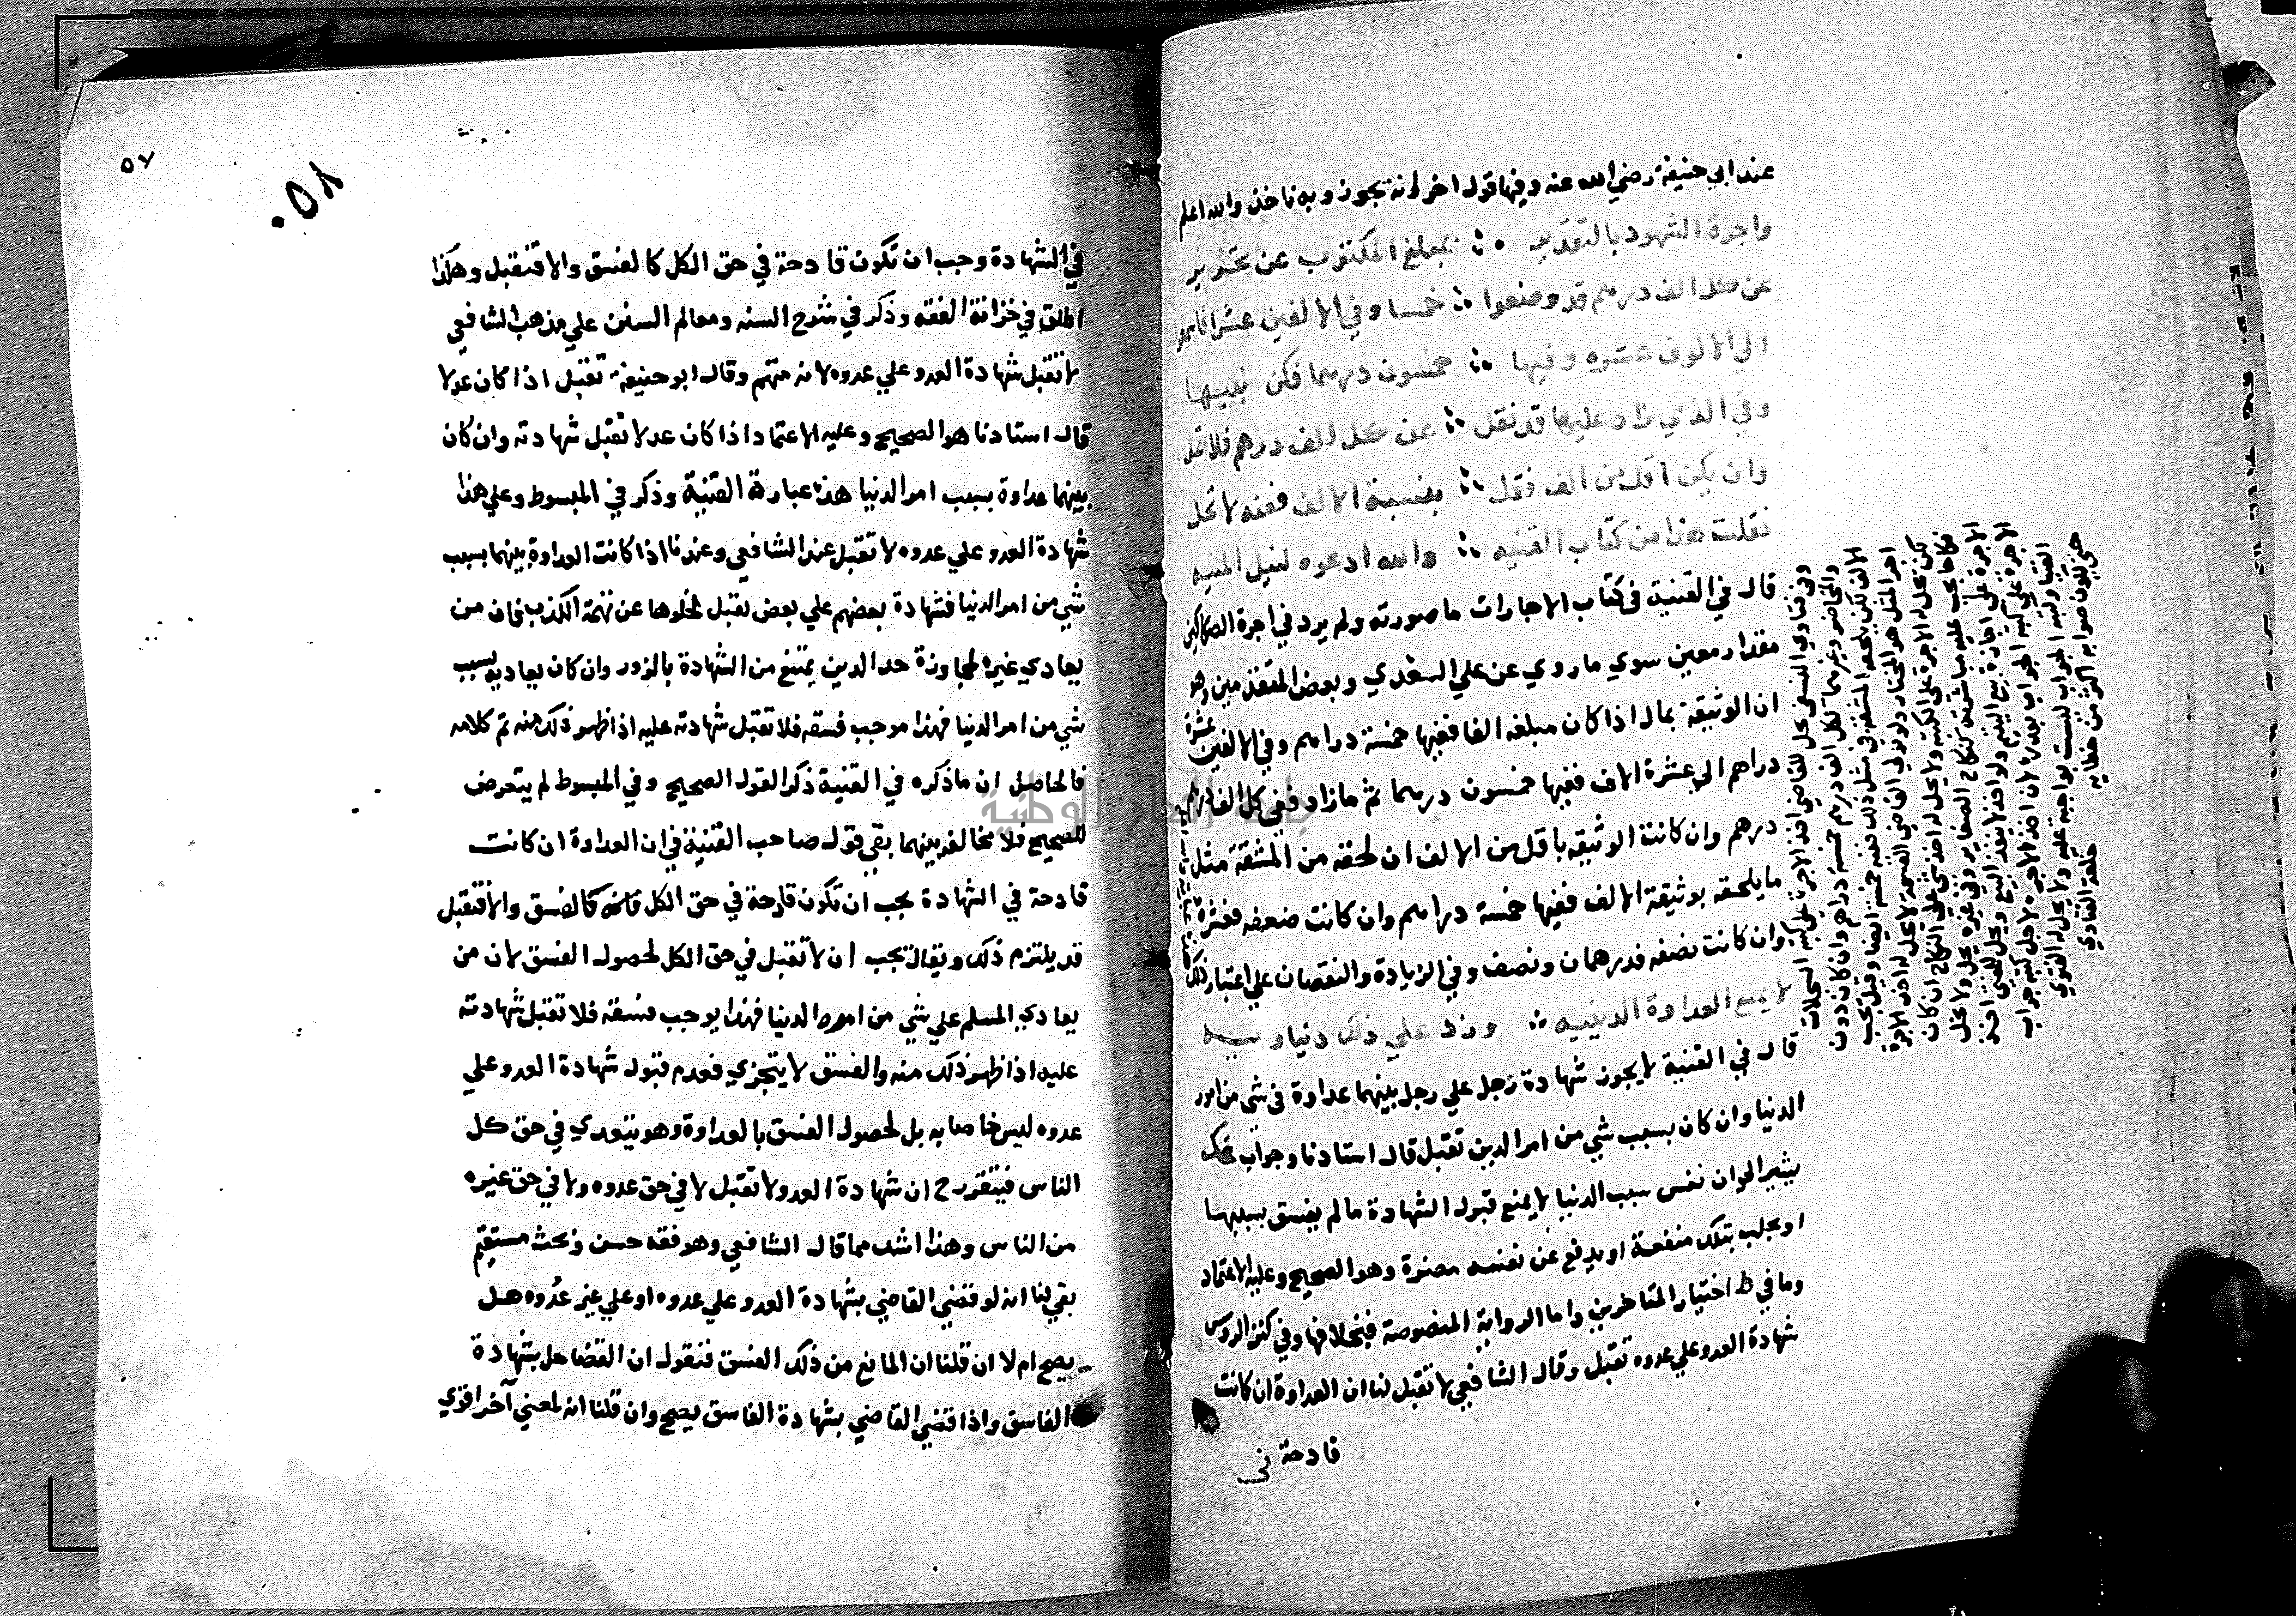 عند ابي حنيفة رضي الله عنه وفيها قول اخر انه تجوز وبه ناخذ والله اعلم
واجرة الشهود بالتقدير ∴ بمبلغ المكتوب عن
عن كل الف درهم قد وضعوا ∴ خمسا وفي الالفين عشرا
الي الالوف عشره وفيها ∴ خمسون درهما فكن نبيها
وفي الذي زاد عليها قد نقل ∴ عن كل الف درهم فلا تمل
وان يكن اقل من الف فقل ∴ بقسمة الالف ففقه لا تحل
نقلت هذا من كتاب القنيه ∴ والله ادعوه لنيل المنيه
قال في القنية في كتاب الاجارات ما صورته ولم يرد في اجرة الصكاكين
مقدار معين سوي ما روي عن علي السغدي وبعض المتقدمين وهو
ان الوثيقة بمال اذا كان مبلغه الفا ففيها خمسة دراهم وفي الالفين عشرة
دراهم الي عشرة الاف ففيها خمسون درهما ثم ما زاد ففي كل الف درهم
درهم وان كانت الوثيقه باقل من الالف ان لحقه من المشقة مثل
ما يلحقه بوثيقة الالف ففيها خمسة دراهم وان كانت ضعفه فعشرة
وان كانت نصفه فدرهمان ونصف وفي الزيادة والنقصان علي اعتبار ذلك
لا يمنع العداوة الدينيه ∴ وزد علي ذلك دنياويه
قال في القنية لا يجوز شهادة رجل علي رجل بينهما عداوة في شي من امور
الدنيا وان كان بسبب شي من امر الدين تقبل قال استادنا وجواب
يشير الي ان نفس سبب الدنيا لا يمنع قبول الشهادة ما لم يفسق بسببها
او يجلب بتلك منفعة او يدفع عن نفسه مضرة وهو الصحيح وعليه الاعتماد
وما في ط اختيار المتاخرين واما الرواية المنصوصة فبخلافها وفي كنز الروس
شهادة العدو علي عدوه تقبل وقال الشافعي لا تقبل لنا ان العداوة ان كانت
قادحة في
وفي فتاوي النسفي يحل للقاضي اخذ الاجرة علي كتبه السجلات
والمحاضر وغيرهما لكل الف درهم خمسة دراهم وان كان دون
اجر المثل هو المختار ولو تولي القاضي القسمة لا يحل له اخذ الاجرة
الاجرة علي اجازة بيع اليتيم ولو اخذ لا ينفذ البيع
٥٧
٠٥٨
في الشهادة وجب ان تكون قادحة في حق الكل كالفسق والا فتقبل وهكذا
اطلق في خزانة الفقه وذكر في شرح السنه ومعالم السنن علي مذهب الشافعي
لا تقبل شهادة العدو علي عدوه لانه متهم وقال ابو حنيفة تقبل اذا كان عدلا
قال استادنا هو الصحيح وعليه الاعتماد اذا كان عدلا تقبل شهادته وان كان
بينهما عداوة بسبب امر الدنيا هذه عبارة القنية وذكر في المبسوط وعلي هذا
شهادة العدو علي عدوه لا تقبل عند الشافعي وعندنا اذا كانت العداوة بينهما بسبب
شي من امر الدنيا فشهادة بعضهم علي بعض تقبل لخلوها عن تهمة الكذب فان من
يعادي غيره لمجاوزة حد الدين يمتنع من الشهادة بالزور وان كان يعاديه بسبب
شي من امر الدنيا فهذا موجب فسقه فلا تقبل شهادته عليه اذا ظهر ذلك منه تم كلامه
فالحاصل ان ما ذكره في القنية ذكر القول الصحيح وفي المبسوط لم يتعرض
للصحيح فلا مخالفه بينهما بقي قول صاحب القنية في ان العداوة ان كانت
قادحة في الشهادة يجب ان تكون قادحة في حق الكل كالفسق والا فتقبل
قد يلتزم ذلك ويقال يجب ان لا تقبل في حق الكل لحصول الفسق لان من
يعادي المسلم علي شي من امور الدنيا فهذا يوجب فسقه فلا تقبل شهادته
عليه اذا ظهر ذلك منه والفسق لا يتجزي فعدم قبول شهادة العدو علي
عدوه ليس خاصا به بل لحصول الفسق بالعداوة وهو يتعدي في حق كل
الناس فيتقرر ح ان شهادة العدو لا تقبل لا في حق عدوه ولا في حق غيره
من الناس وهذا اشد مما قال الشافعي وهو فقه حسن وبحث مستقيم
بقي لنا انه لو قضي القاضي بشهادة العدو علي عدوه او علي غير عدوه هل
يصح ام لا ان قلنا ان المانع من ذلك الفسق فنقول ان القضا حل بشهادة
الفاسق واذا قضي القاضي بشهادة الفاسق يصح وان قلنا انه لمعني آخر اقوي
جامعة النجاح الوطنية